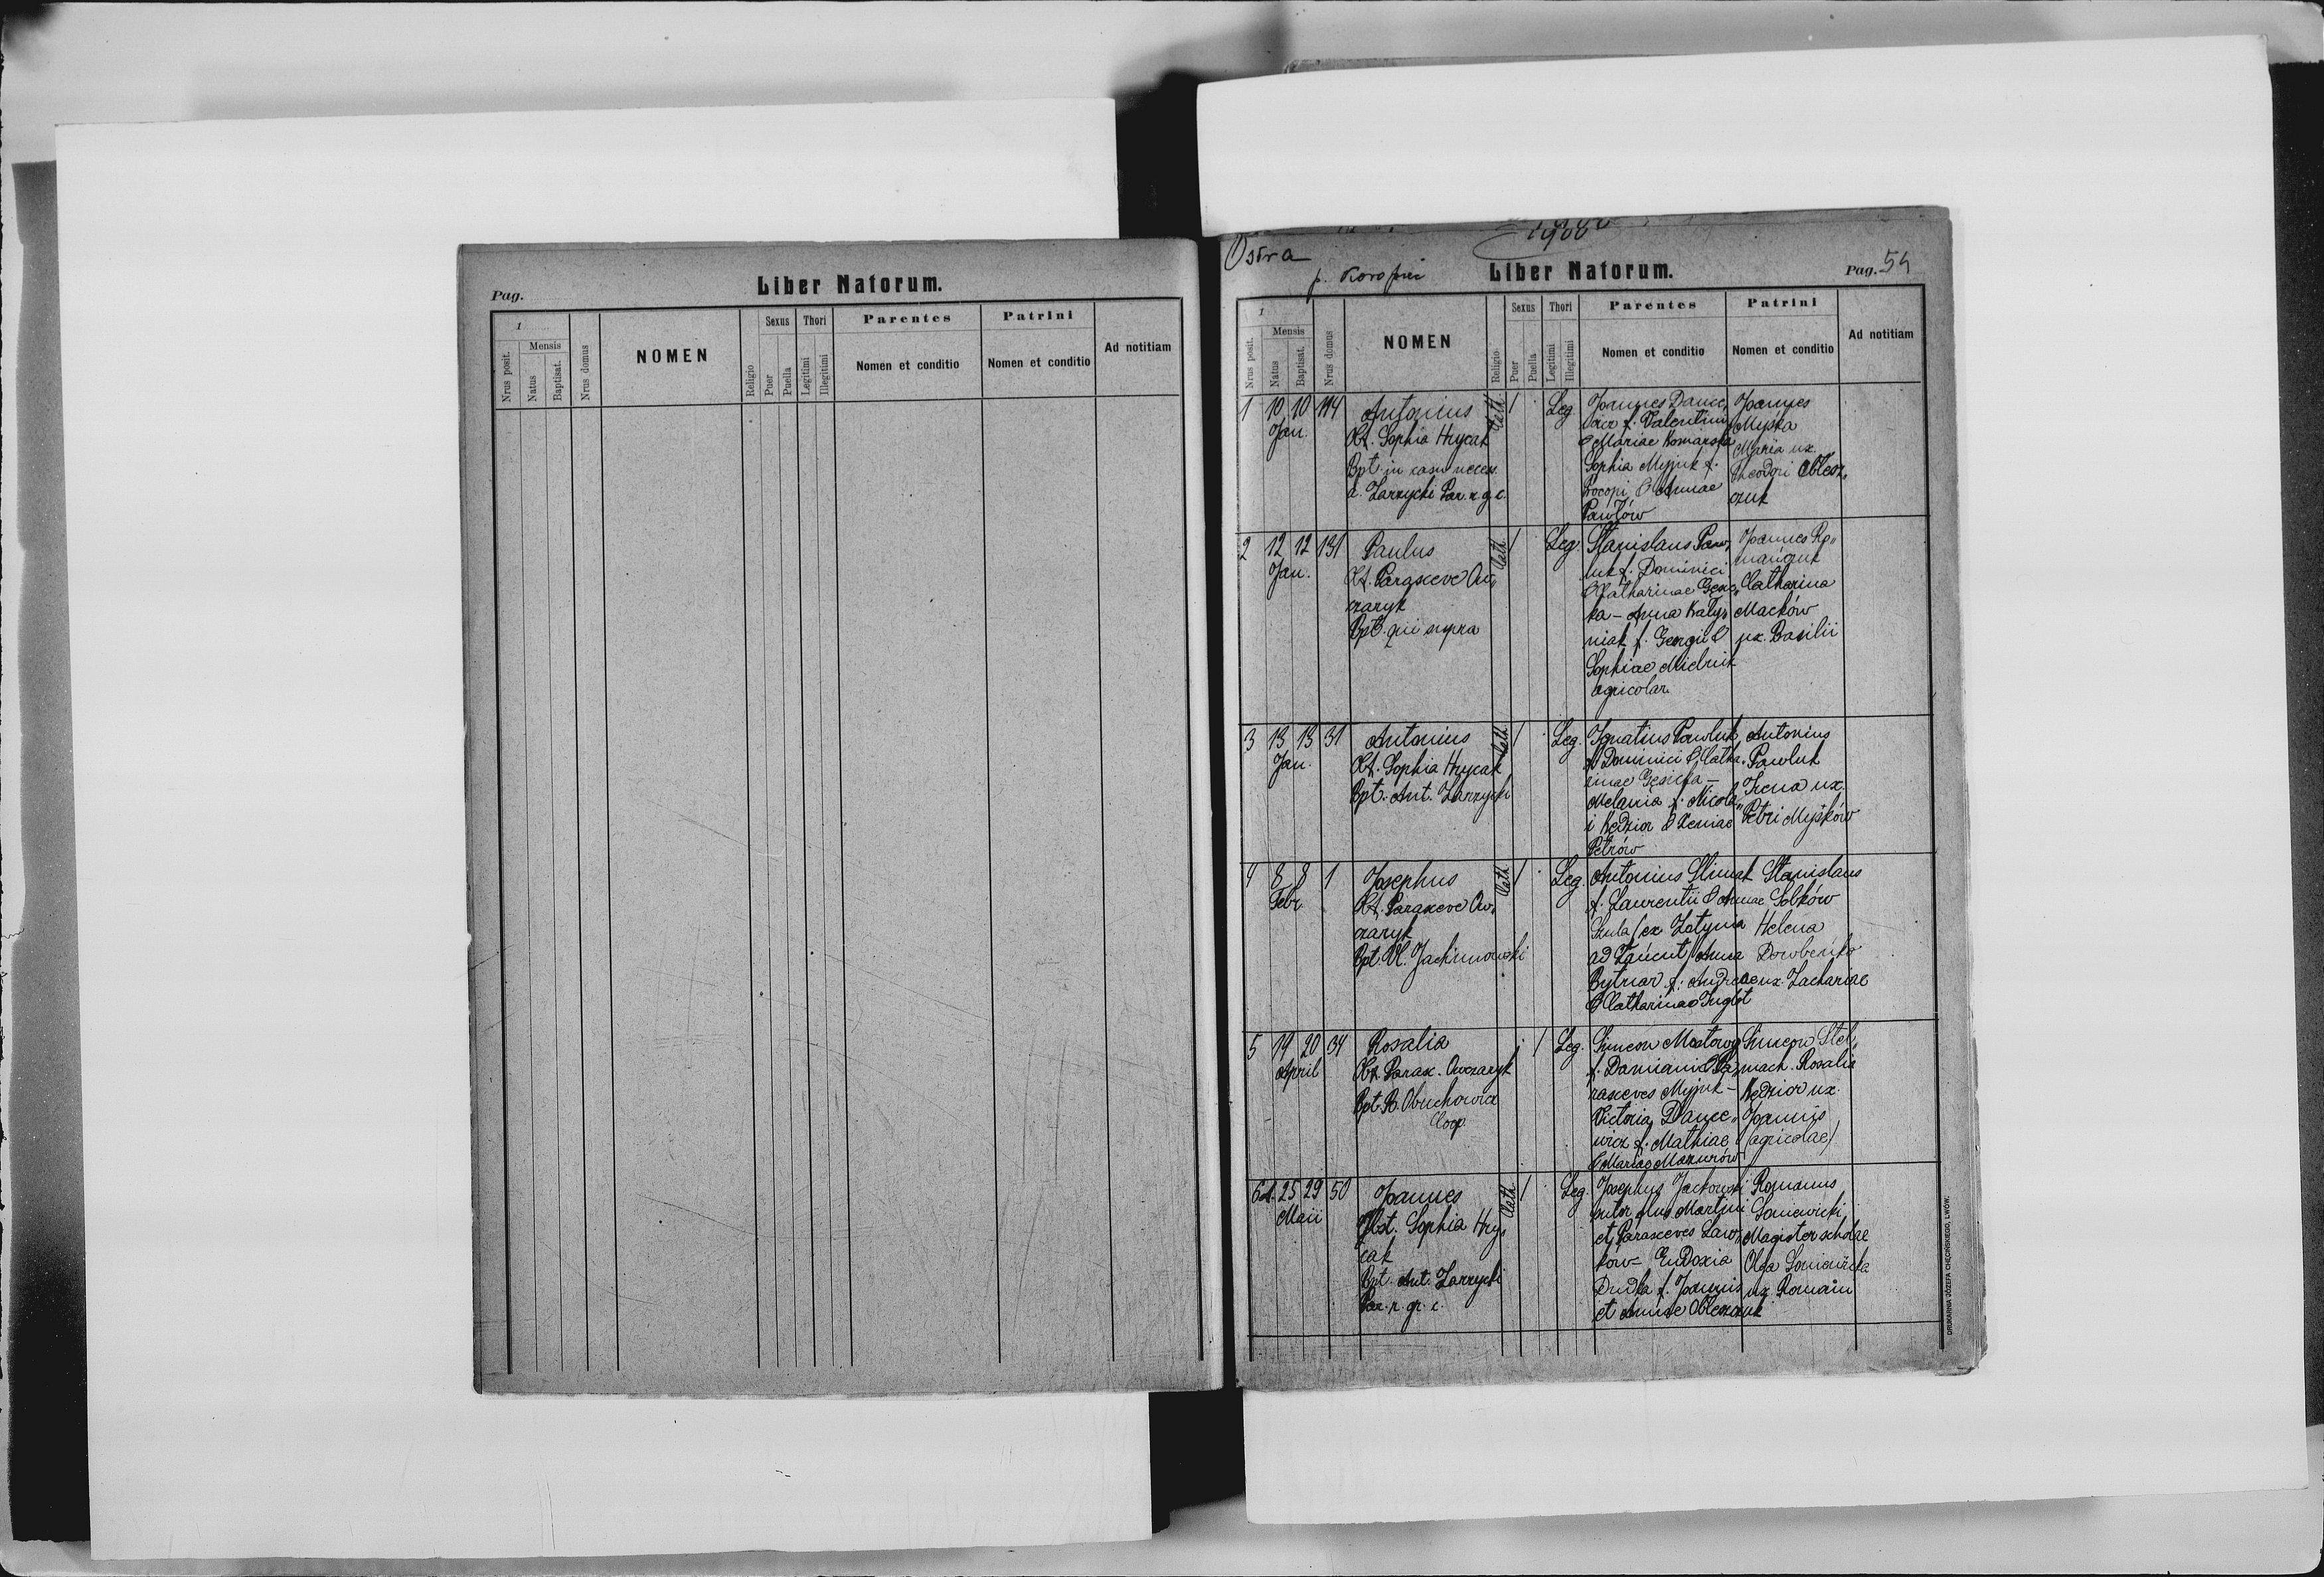 Pag.
Liber Natorum.
1
Nrus posit.
Mensis
Natus
Baptisat.
Nrus domus
NOMEN
Religio
Sexus
Puer
Puella
Thori
Legitimi
Illegitimi
Parentes
Nomen et conditio
Patrini
Nomen et conditio
Ad notitiam
Ostra
1900
Liber Natorum.
Pag. 54
1
Nrus posit.
Mensis
Natus
Baptisat.
Nrus domus
NOMEN
Religio
Sexus
Puer
Puella
Thori
Legitimi
Illegitimi
Parentes
Nomen et conditio
Patrini
Nomen et conditio
Ad notitiam
1 10 10 114
Jan.
Antonius
Obst. Sophia Hrycak
Bpt. in casu necess.
a. Zarzycki Par. r. g. c.
Cath. / Leg.
Joannes Dance,
wicz f. Valentini
& Mariae Komarska
Sophia Myjuk f.
Procopi & Annae
Pawłów
Joannes
Myśka
Maria ux.
Theodori Oblesz,
czuk
2 12 12 131
Jan.
Paulus
Obst. Parasceve Ow,
czaryk
Bpt. qui supra
Cath. / Leg.
Stanislaus Paw,
luk f. Dominici
& Catharinae Gęsic,
ka - Anna Katyn,
niak f. Georgii &
Sophiae Mielnik
agricolar.
Joannes Ro,,
mańczuk
Catharina
Maćków
ux. Basilii
3 13 13 31
Jan.
Antonius
Obst. Sophia Hrycak
Bpt. Ant. Zarzycki
Cath. / Leg.
Ignatius Pawluk,
f. Dominici & Catha,
rinae Gęsicka -
Melania f. Nicola,,
i Kędzior & Xeniae
Petrów
Antonius
Pawluk
Irena ux.
Petri Myśków
4 8 8 1
Febr.
Josephus
Obst. Parasceve Ow,
czaryk
Bpt. Vl. Jachimowski
Cath. / Leg.
Antonius Slimak
f. Laurentii & Annae
Szula (ex Zołynia
ad Łańcut) Anna
Bytnar f. Andreae
& Catharinae Inglot
Stanislaus
Sobków
Helena
Dowbeńko
ux. Zachariae
5 19 20 34
April
Rosalia
Obst. Parasc. Owczaryk
Bpt. B. Obuchowicz
Coop.
/ Leg.
Simeon Mostowy
f. Damiani & Pa,
rasceves Myjuk -
Victoria Dance,
wicz f. Mathiae
& Mariae Mazurów
Simeon Stel,,
mach. Rosalia
Kędzior ux.
Joannis
(agricolae)
6 25 29 50
Maii
Joannes
Obst. Sophia Hry,
cak
Bpt. Ant. Zarzycki
Par. r. gr. c.
Cath. / Leg.
Josephus Jackowski
sutor filius Martini
et Parasceves Law,
ków - Eudoxia
Dudka f. Joannis
et Annae Obleszczuk
Romanus
Soniewicki,
Magister scholae
Olga Soniewicka
ux. Romani
DRUKARNIA JÓZEFA CHĘCIŃSKIEGO, LWÓW.